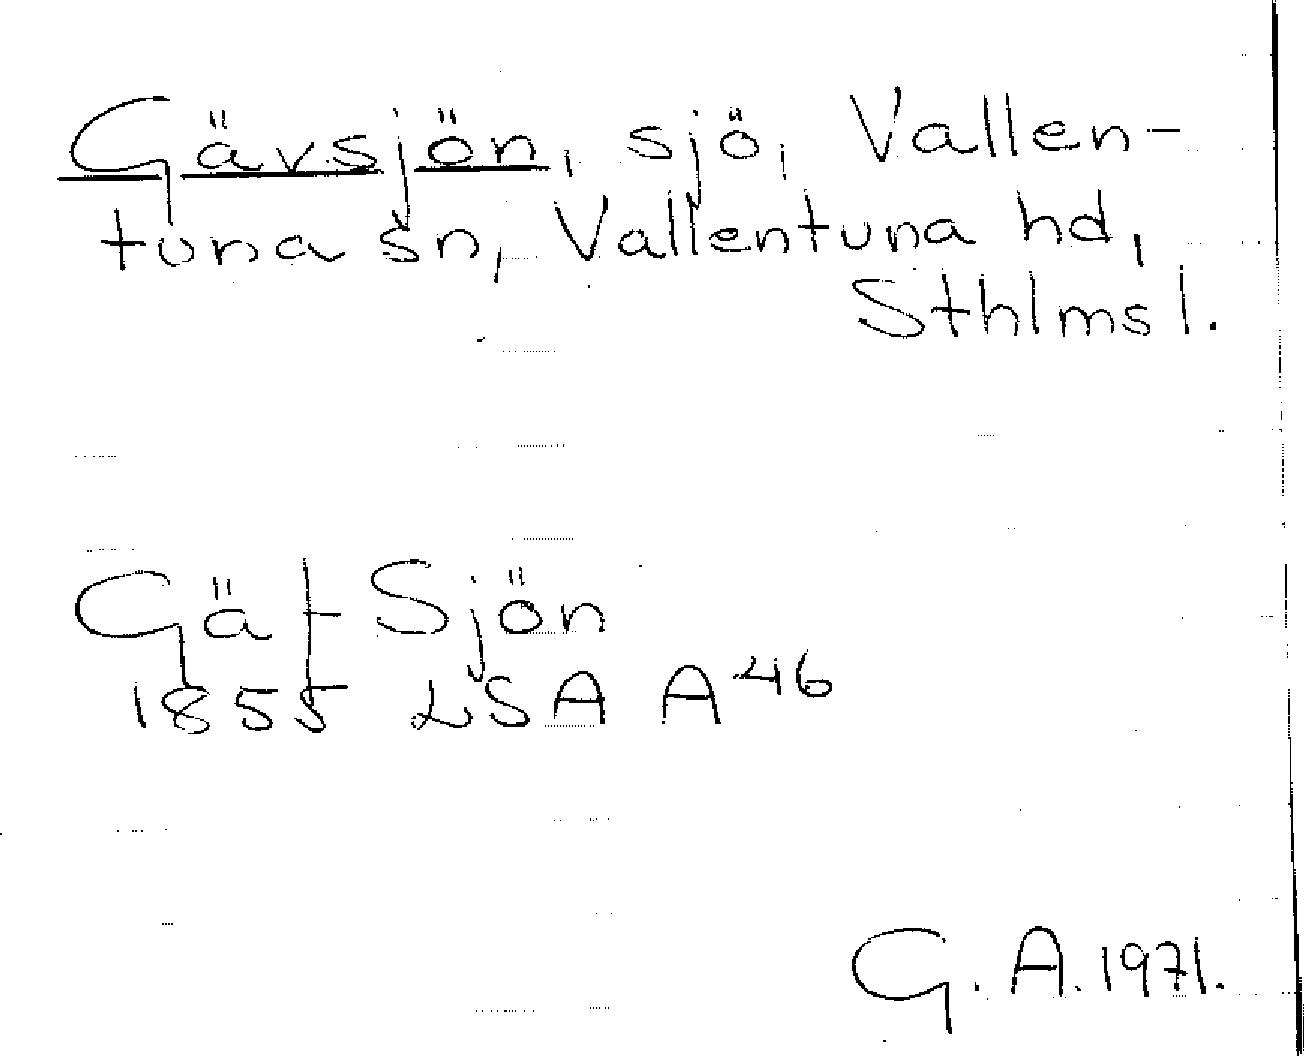 Gävsjön, sjö, Vallen-
tuna sn, Vallentuna hd,
Sthlms l.
Gäf Sjön
1855 LSA A46
G. A. 1971.